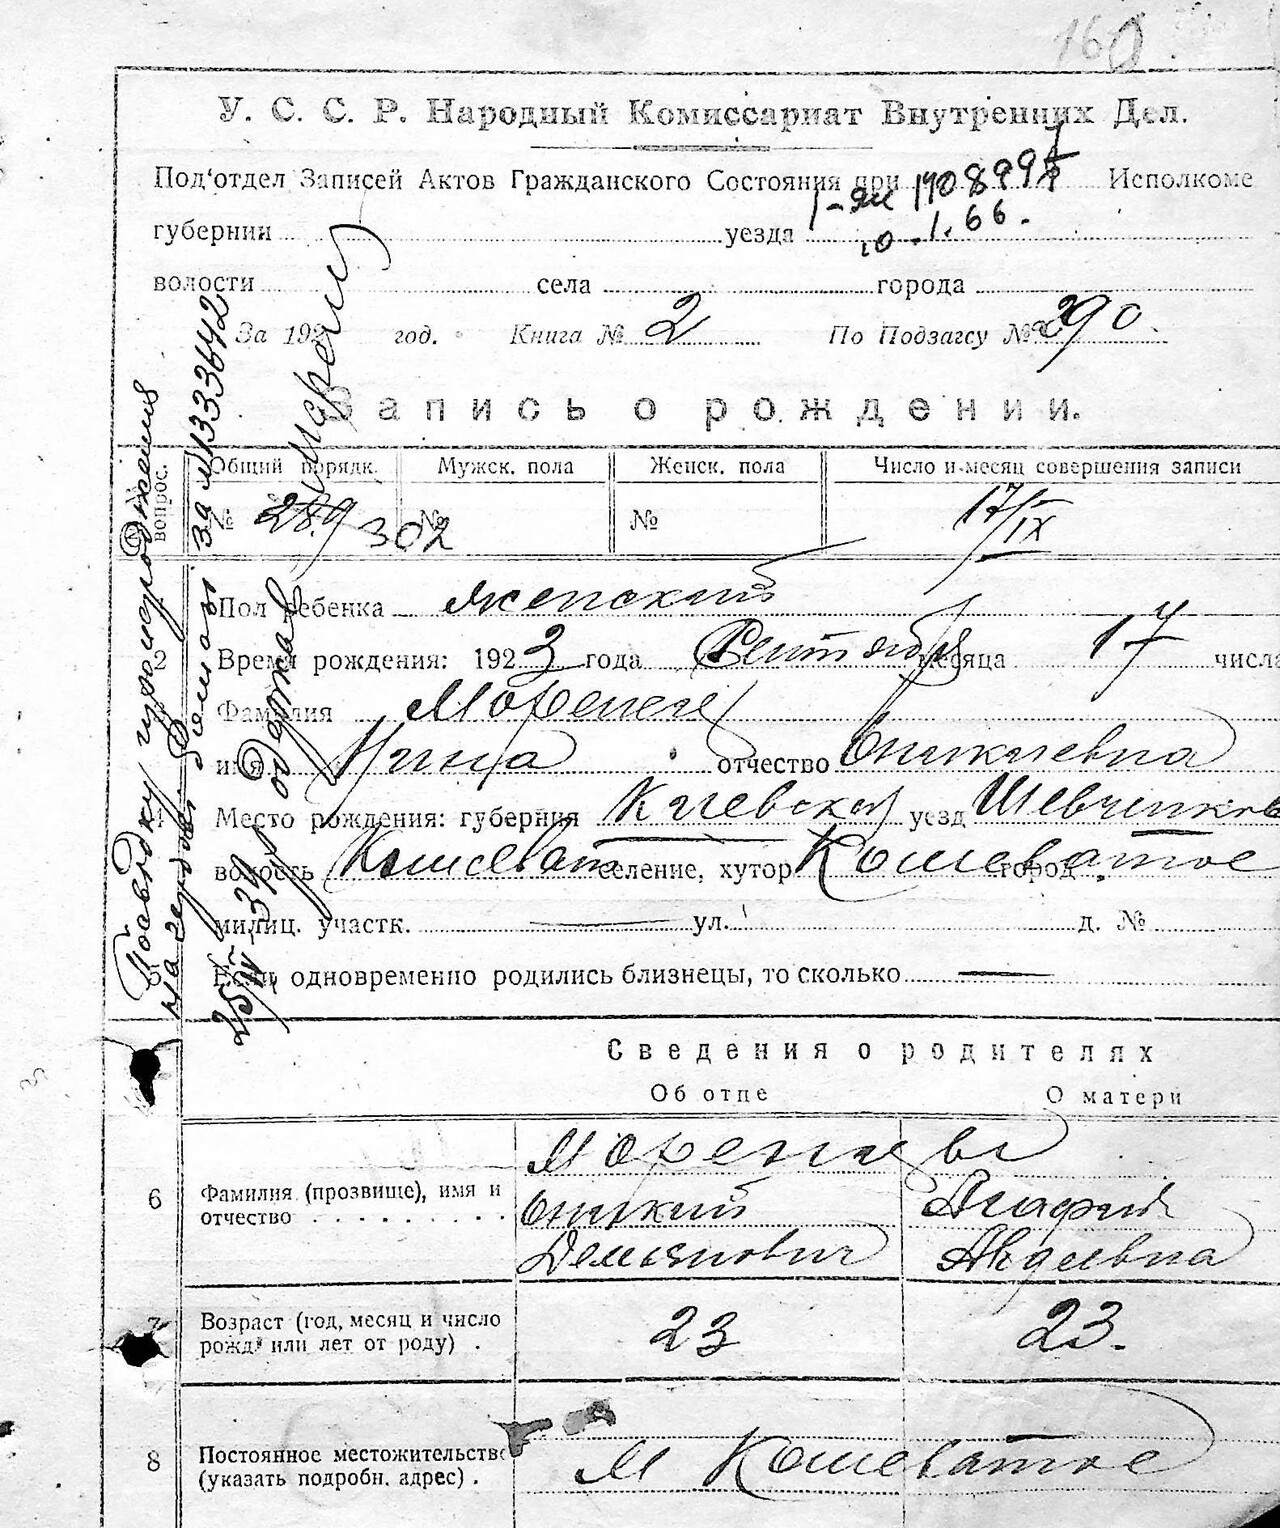 160
У. С. С. Р. Народный Комиссариат Внутренних Дел.
Под'отдел Записей Актов Гражданского Состояния при Исполкоме
губернии уезда 10.1.66.
волости села города
За 192 год. Книга № 2 По Подзагсу № 290.
Запись о рождении.
№ вопрос. Общий порядк. Мужск. пола Женск. пола Число и месяц совершения записи
№ 289 302 № № 17/IX
Пол ребенка женский
2 Время рождения: 1923 года Сентября месяца 17 числа
Фамилия
имя отчество Оникиевна
4 Место рождения: губерния Киевская уезд Шевченков
волость Кошеват селение, хутор город Кошеватое
милиц. участк. ул. д. №
5 Если одновременно родились близнецы, то сколько
Сведения о родителях
Об отце О матери
6 Фамилия (прозвище), имя и отчество
Оникий Агафия
Демьянович Авдеевна
7 Возраст (год, месяц и число рожд. или лет от роду) . 23 23.
8 Постоянное местожительство (указать подробн. адрес) . М Кошеватое
Довідку
за № 1333642
одержав